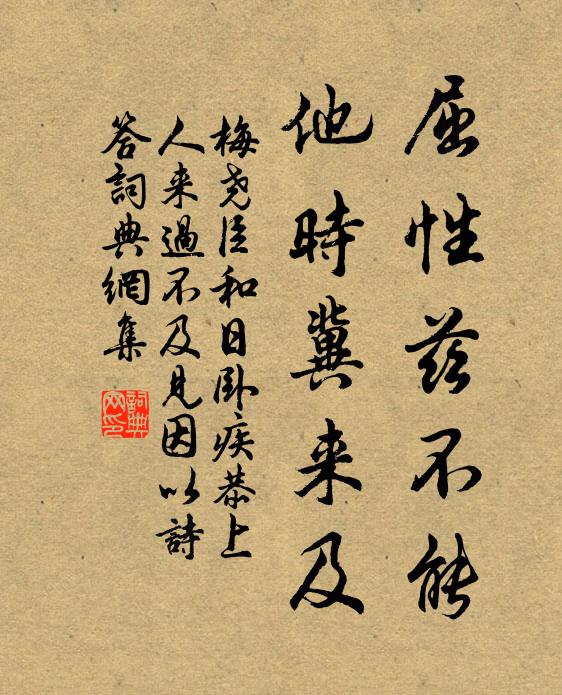 屈性茲不能
他時冀来及
梅尧臣和日卧疾恭上
人来過不及見因以詩
答詞典網集
詞典
网印